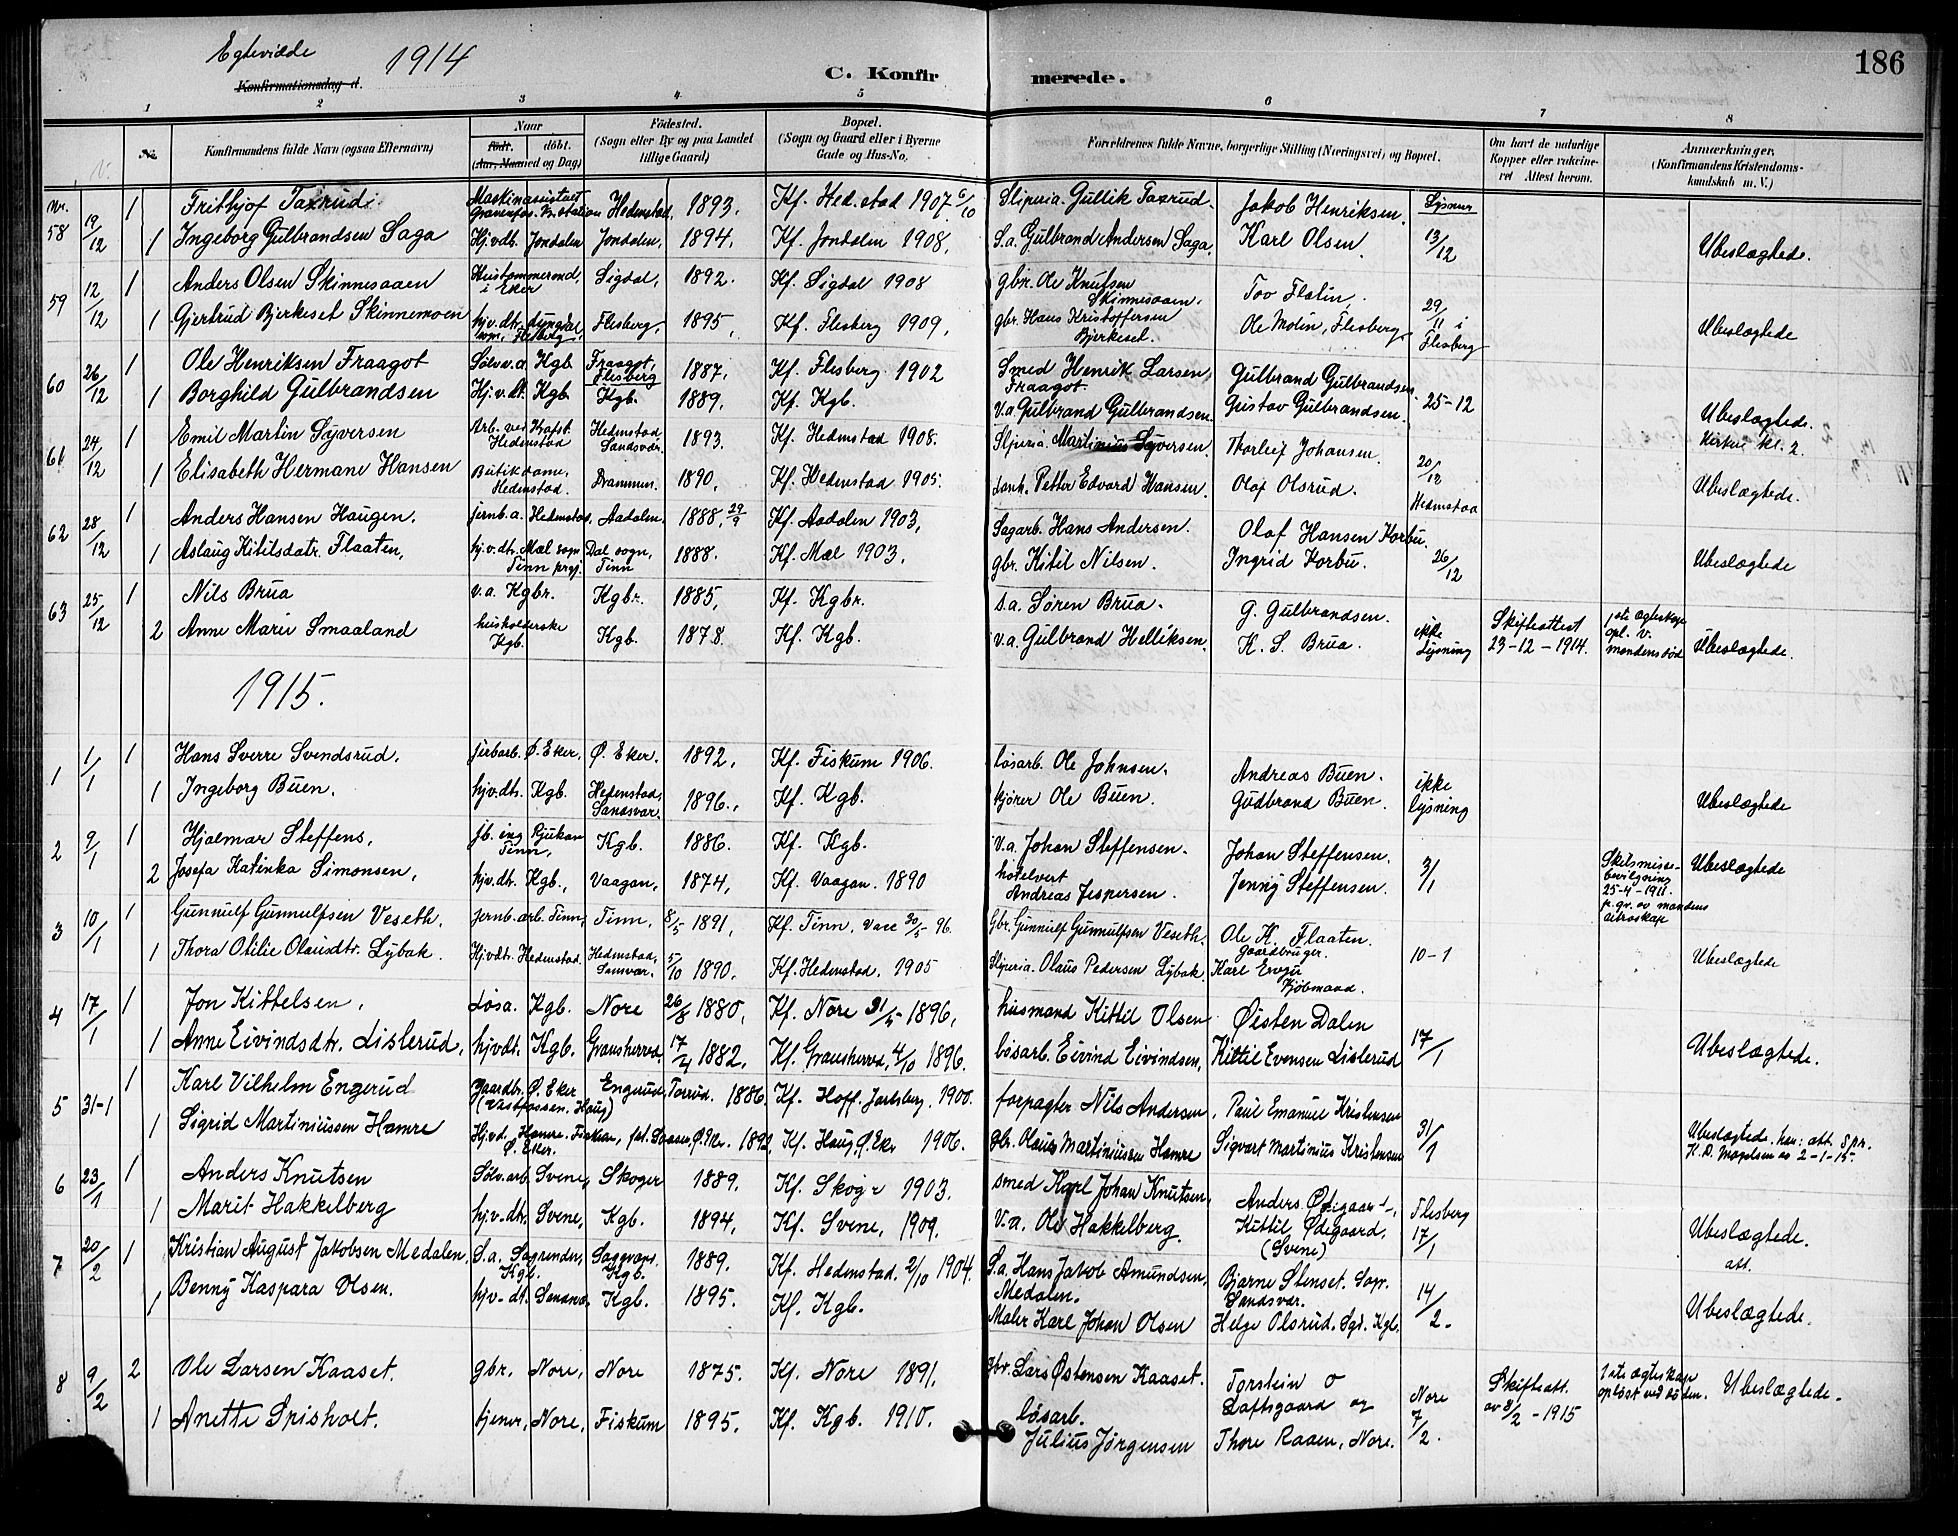 Egtevidde 1914
Konfirmationsdag d.
C. Konfirmerede.
186
1 2 3 4 5 6 7 8
No.
Konfirmandens fulde Navn (ogsaa Efternavn)
Naar
født. døbt.
(Aar, Maaned og Dag)
Fødested.
(Sogn eller By og paa Landet tillige Gaard)
Bopæl.
(Sogn og Gaard eller i Byerne Gade og Hus-No.
Forældrenes fulde Navne, borgerlige Stilling (Næringsvei) og Bopæl.
Om havt de naturlige Kopper eller vakcineret Attest herom.
Anmærkninger,
(Konfirmandens Kristendomskundskab m. V.)
Nr.
58 19/12 1 Frithjof Taxrud Maskinassistent Hedenstad, 1893. Kf. Hed.stad 1907 6/10 Sliperia. Gullik Taxrud. Jakob Henriksen. Lysning
1 Ingeborg Gulbrandsen Saga Hj.vdb. Jondalen Jondalen, 1894, Kf. Jondalen 1908, S.a. Gulbrand Andersen Saga, Karl Olsen, 13/12 Ubeslægtede.
59 12/12 1 Anders Olsen Skinnesaaen i Eker Sigdal, 1892. Kf. Sigdal 1908 gbr. Ole Knutsen Skinnesaaen. Tov Flatin,
1 Gjertrud Bjerkeset Skinnemoen hj.v.dtr. Flesberg, 1895, Kf. Flesberg 1909, gbr. Hans Kristoffersen Bjerkeset. Ole Molin, Flesberg 29/11 i Flesberg Ubeslægtede
60 26/12 1 Ole Henriksen Fraagot Sølvv.a. Kgb. Fraagot, Flesberg 1887. Kf. Flesberg 1902 Smed Henrik Larsen, Fraagot Gulbrand Gulbrandsen
1 Borghild Gulbrandsen Hj.v.dt. Kgb. Kgb. 1889. Kf. Kgb. V.a. Gulbrand Gulbrandsen. Gustav Gulbrandsen. 25-12 Ubeslægtede.
61 24/12 1 Emil Martin Syversen Arb. ved Kraftst. Hedenstad Hedenstad Sandsvær. 1893. Kf. Hedenstad 1908. Sliperia. Martinius Syversen. Thorleif Johansen. Kirken kl. 2.
1 Elisabeth Hermane Hansen Butikdame, Hedenstad. Drammen. 1890, Kf. Hedenstad 1905. Petter Edvard Hansen. Olaf Olsrud. 20/12 Hedenstad Ubeslægtede.
62 28/12 1 Anders Hansen Haugen. jernb.a. Hedenstad, Aadalen. 1888. 29/9 Kf. Aadalen 1903, Sagarb. Hans Andersen. Olaf Hansen Korbu.
1 Aslaug Kitilsdatr. Flaaten, hj.v.dtr. Mæl sogn Tinn prgj. Dal sogn, Tinn 1888. Kf. Mæl 1903, gbr. Kitil Nilsen. Ingrid Korbu. 26/12 Ubeslægtede
63 25/12 1 Nils Brua v.a. Kgbr. Kgbr. 1885, Kf. Kgbr. S.a. Søren Brua. G. Gulbrandsen.
2 Anne Marie Smaaland husholderske Kgb. Kgb. 1878. Kf. Kgb. v.a. Gulbrand Helliksen. K. S. Brua. ikke Lysning Skifteattest 23-12-1914. 1ste ægteskap opl. v. mandens død Ubeslægtede.
1915.
1 1/1 1 Hans Sverre Svendsrud. Ø. Eker, Ø. Eker. 1892, Kf. Fiskum 1906. løsarb. Ole Johnsen. Andreas Buen.
1 Ingeborg Buen. hjv.dtr. Kgb. Hedenstad, Sandsvær. 1896., Kf. Kgb. kjører Ole Buen. Gudbrand Buen. ikke lysning Ubeslægtede
2 9/1 1 Hjalmar Steffens, jb. ing Rjukan Tinn, Kgb. 1886. Kf. Kgb. V.a. Johan Steffensen. Johan Steffensen.
2 Josefa Katinka Simonsen, hjv.dt. Kgb., Vaagan, 1874, Kf. Vaagan. 1890 hotelvert Andreas Jespersen. Jenny Steffensen. 3/1 Skilsmissebevilgning 25-4-1911. Ubeslægtede
3 10/1 1 Gunnulf Gunnulfsen Veseth. Jernb.arb. Tinn, Tinn, 8/5 1891, Kf. Tinn, Vacc 30/5 96. Gbr. Gunnulf Gunnulfsen Veseth. Ole K. Flaaten. Gaardbruger.
1 Thora Otilie Olausdtr. Lybak. Hjvdt. Hedenstad. Hedenstad, Sansvær. 5/10 1890. Kf. Hedenstad. 1905 Sliperia. Olaus Pedersen Lybak Karl Evju Kjøbmand. 10-1 Ubeslægtede
4 17/1 1 Jon Kittelsen, Løsa. Kgb. Nore 26/8 1880, Kf. Nore 31/5 1896, husmand Kittil Olsen Øisten Dalen
1 Anne Eivindsdtr. Lislerud, hjvdt. Kgb. Gransherred. 17/4 1882. Kf. Gransherred, 4/10 1896. løsarb. Eivind Eivindsen, Kittil Evensen Lislerud 17/1 Ubeslægtede.
5 31-1 1 Karl Vilhelm Engerud Gaardbr. Ø. Eker (Vestfossen, Haug) Engerud, 1886 Kf. Hoff. Jarlsberg. 1900. forpagter Nils Andersen, Paul Emanuel Kristensen
1 Sigrid Martiniussen Hamre Hj.v.d. Hamre. Ø. Eker. 1892, Kf. Haug, Ø. Eker 1906. gbr. Olaus Martiniussen Hamre Sigvart Martinius Kristensen 31/1 Ubeslægtede. han: att. Spr. 2-1-15.
6 23/1 1 Anders Knutsen Sølv.arb. Svene, Skoger 1889. Kf. Skoger 1903. smed Karl Johan Knutsen, Anders Ødegaard,
1 Marit Hakkelberg hj.v.dtr. Svene, Kgb. 1894, Kf. Svene, 1909. V.a. Ole Hakkelberg. Kittil Ødegaard, (Svene) Flesberg 17/1 Ubeslægtede.
7 20/2 1 Kristian August Jakobsen Medalen, S.a. Kgb. Kgb. 1889. Kf. Hedenstad, 2/10 1904. S.a. Hans Jakob Amundsen, Medalen. Bjarne Stenset. Sandsvær. att.
1 Benny Kaspara Olsen. hjv-dt. Kgb. 1895. Kf. Kgb. Maler Karl Johan Olsen Helge Olsrud. Kgb. 14/2. Ubeslægtede.
8 9/2 2 Ole Larsen Kaaset. gbr. Nore, Nore 1875. Kf. Nore 1891. gbr. Lars Østensen Kaaset. Torstein O Loftsgaard og Skifteatt. av 8/2-1915 1ste ægteskap opløst ved døden. Ubeslægtede.
1 Anette Spisholt. tjener, Nore, Fiskum 1895. Kf. Kgb. 1910. løsarb. Julius Jørgensen Thore Raaen, Nore. Nore 7/2.